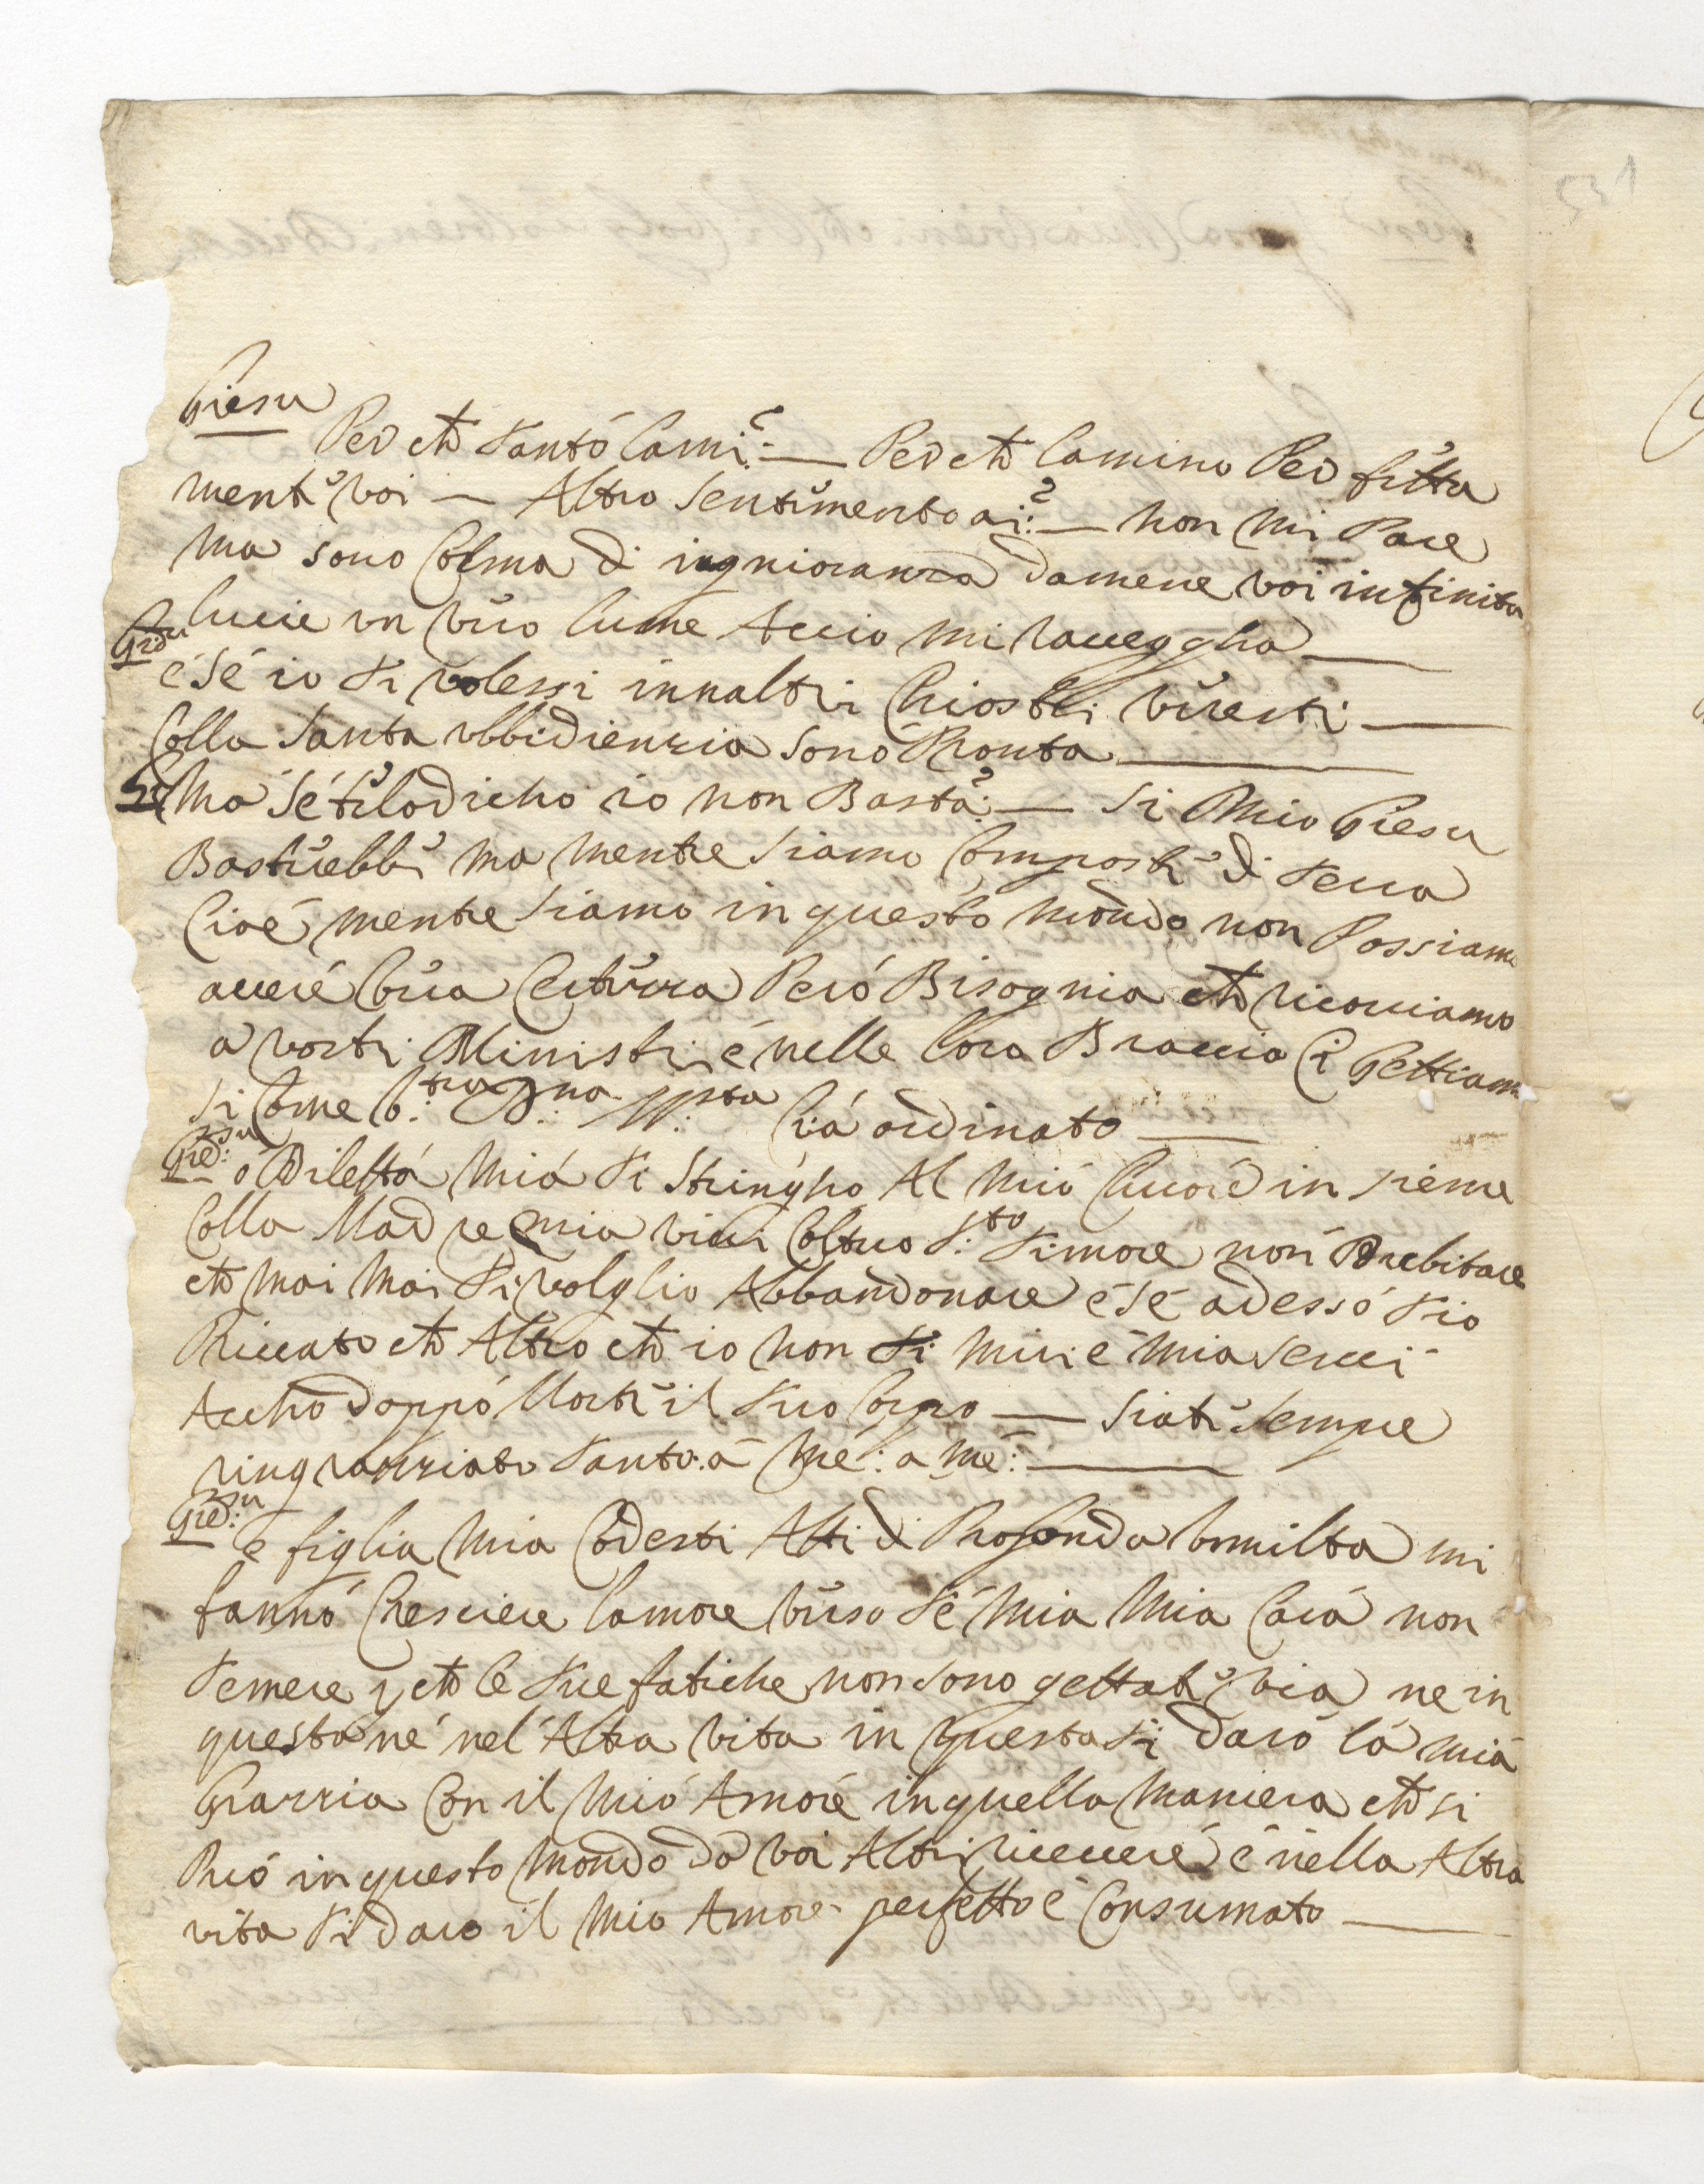 Giesu
Per che Tanto Cami:? — Per che Camino Per fetta
ment voi — Altro Sentimento ai:? — non mi Pare
ma sono Colma di ingnioranza damene voi infinita
Lucie un vero lume Accio mi raveggha —
Giesu
é Sé io Ti volessi innaltri Chiostri veresti —
Colla Santa ubbidienzia Sonó Pronta —
Ma Sé telodicho io non Basta:? — Si Mio Giesu
Basterebbe ma mentre Siamo Composti di Terra
Cioé mentre Siamo in questo mondo non Possiamo
averé vera Certezza Peró Bisognia che ricorriamo
a vosti Ministri é nelle Lora Braccia Ci Gettiamo
Si Come V:tra D:na M:sta Ci á ordinato —
Gie:su
o Diletta Mia Ti Stringho Al Mió Cuoré in sieme
Colla Madre mia vivi Coltuo S:to Timore non Dubitare
che mai mai Ti volglio Abbandonare é sé adessó Tio
Piccato che Altro che io non Ti miri é mia Serri
Accho doppó Morte il Tuo Corpo — Siate Sempre
ringrazziato Tanto: a mé: a mé: —
Gie:su
e figlia Mia Codesti Atti di Profonda Vmilta mi
fannó Cresciere Lamore verso Té Mia Mia Cara non
Temere che le Tue fatiche non Sono gettate via ne in
questa né nel Altra vita in questa Ti daró lá mia
Grazzia Con il Mió Amoré inquella Maniera che si
Puó in questo Mondo da voi Altri riceveré é nella Altra
vita Ti daro il Mio Amore perfetto é Consumato —
531